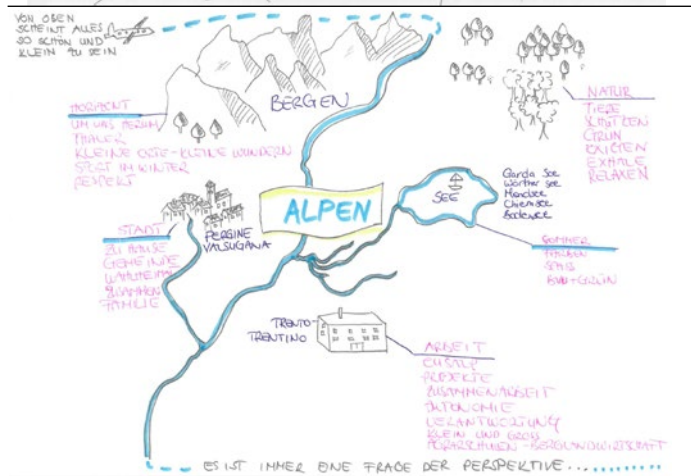 VON OBEN
SCHEINT ALLES
SO SCHÖN UND
KLEIN ZU SEIN
BERGEN
HORIZONT
UM UNS HERUM
THÄLER
KLEINE ORTE - KLEINE WUNDERN
SPORT IM WINTER
RESPEKT
NATUR
TIERE
SCHÜTZEN
GRÜN
EXHALE
RELAXEN
ALPEN
SEE
Garda See
Wörther See
Mondsee
Chiemsee
Bodensee
SOMMER
FARBEN
SPAß
BLAU+GRÜN
STADT
ZU HAUSE
GEMEINDE
WAHLHEIMAT
ZUSAMMEN
FAMILIE
PERGINE
VALSUGANA
TRENTO-
TRENTINO
ARBEIT
EUSALP
PROJEKTE
ZUSAMMENARBEIT
AUTONOMIE
VERANTWORTUNG
KLEIN UND GROSS
- BERGLANDWIRTSCHAFT
ES IST IMMER EINE FRAGE DER PERSPEKTIVE...